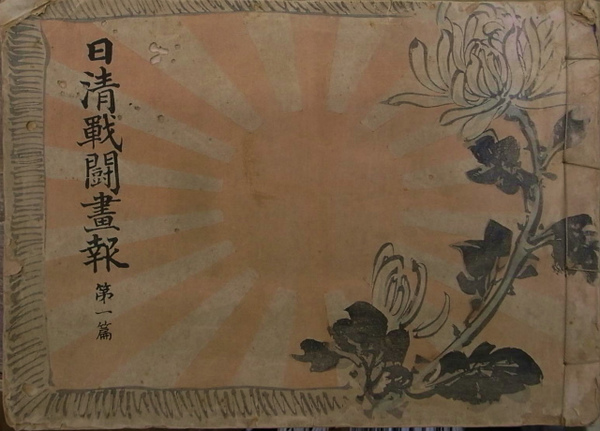 日清戰鬪畫報
第一篇